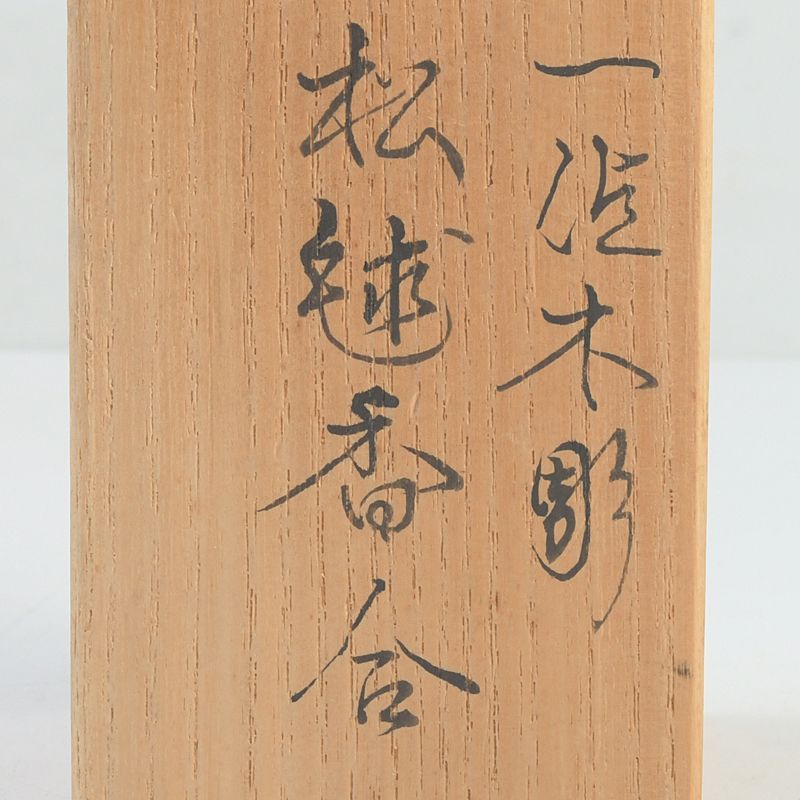 一位木彫
松毬香合